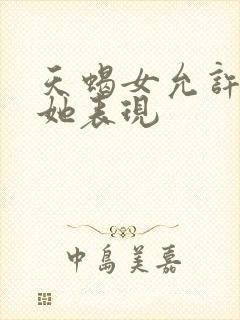 天蠍女允許
她表現
中島美嘉